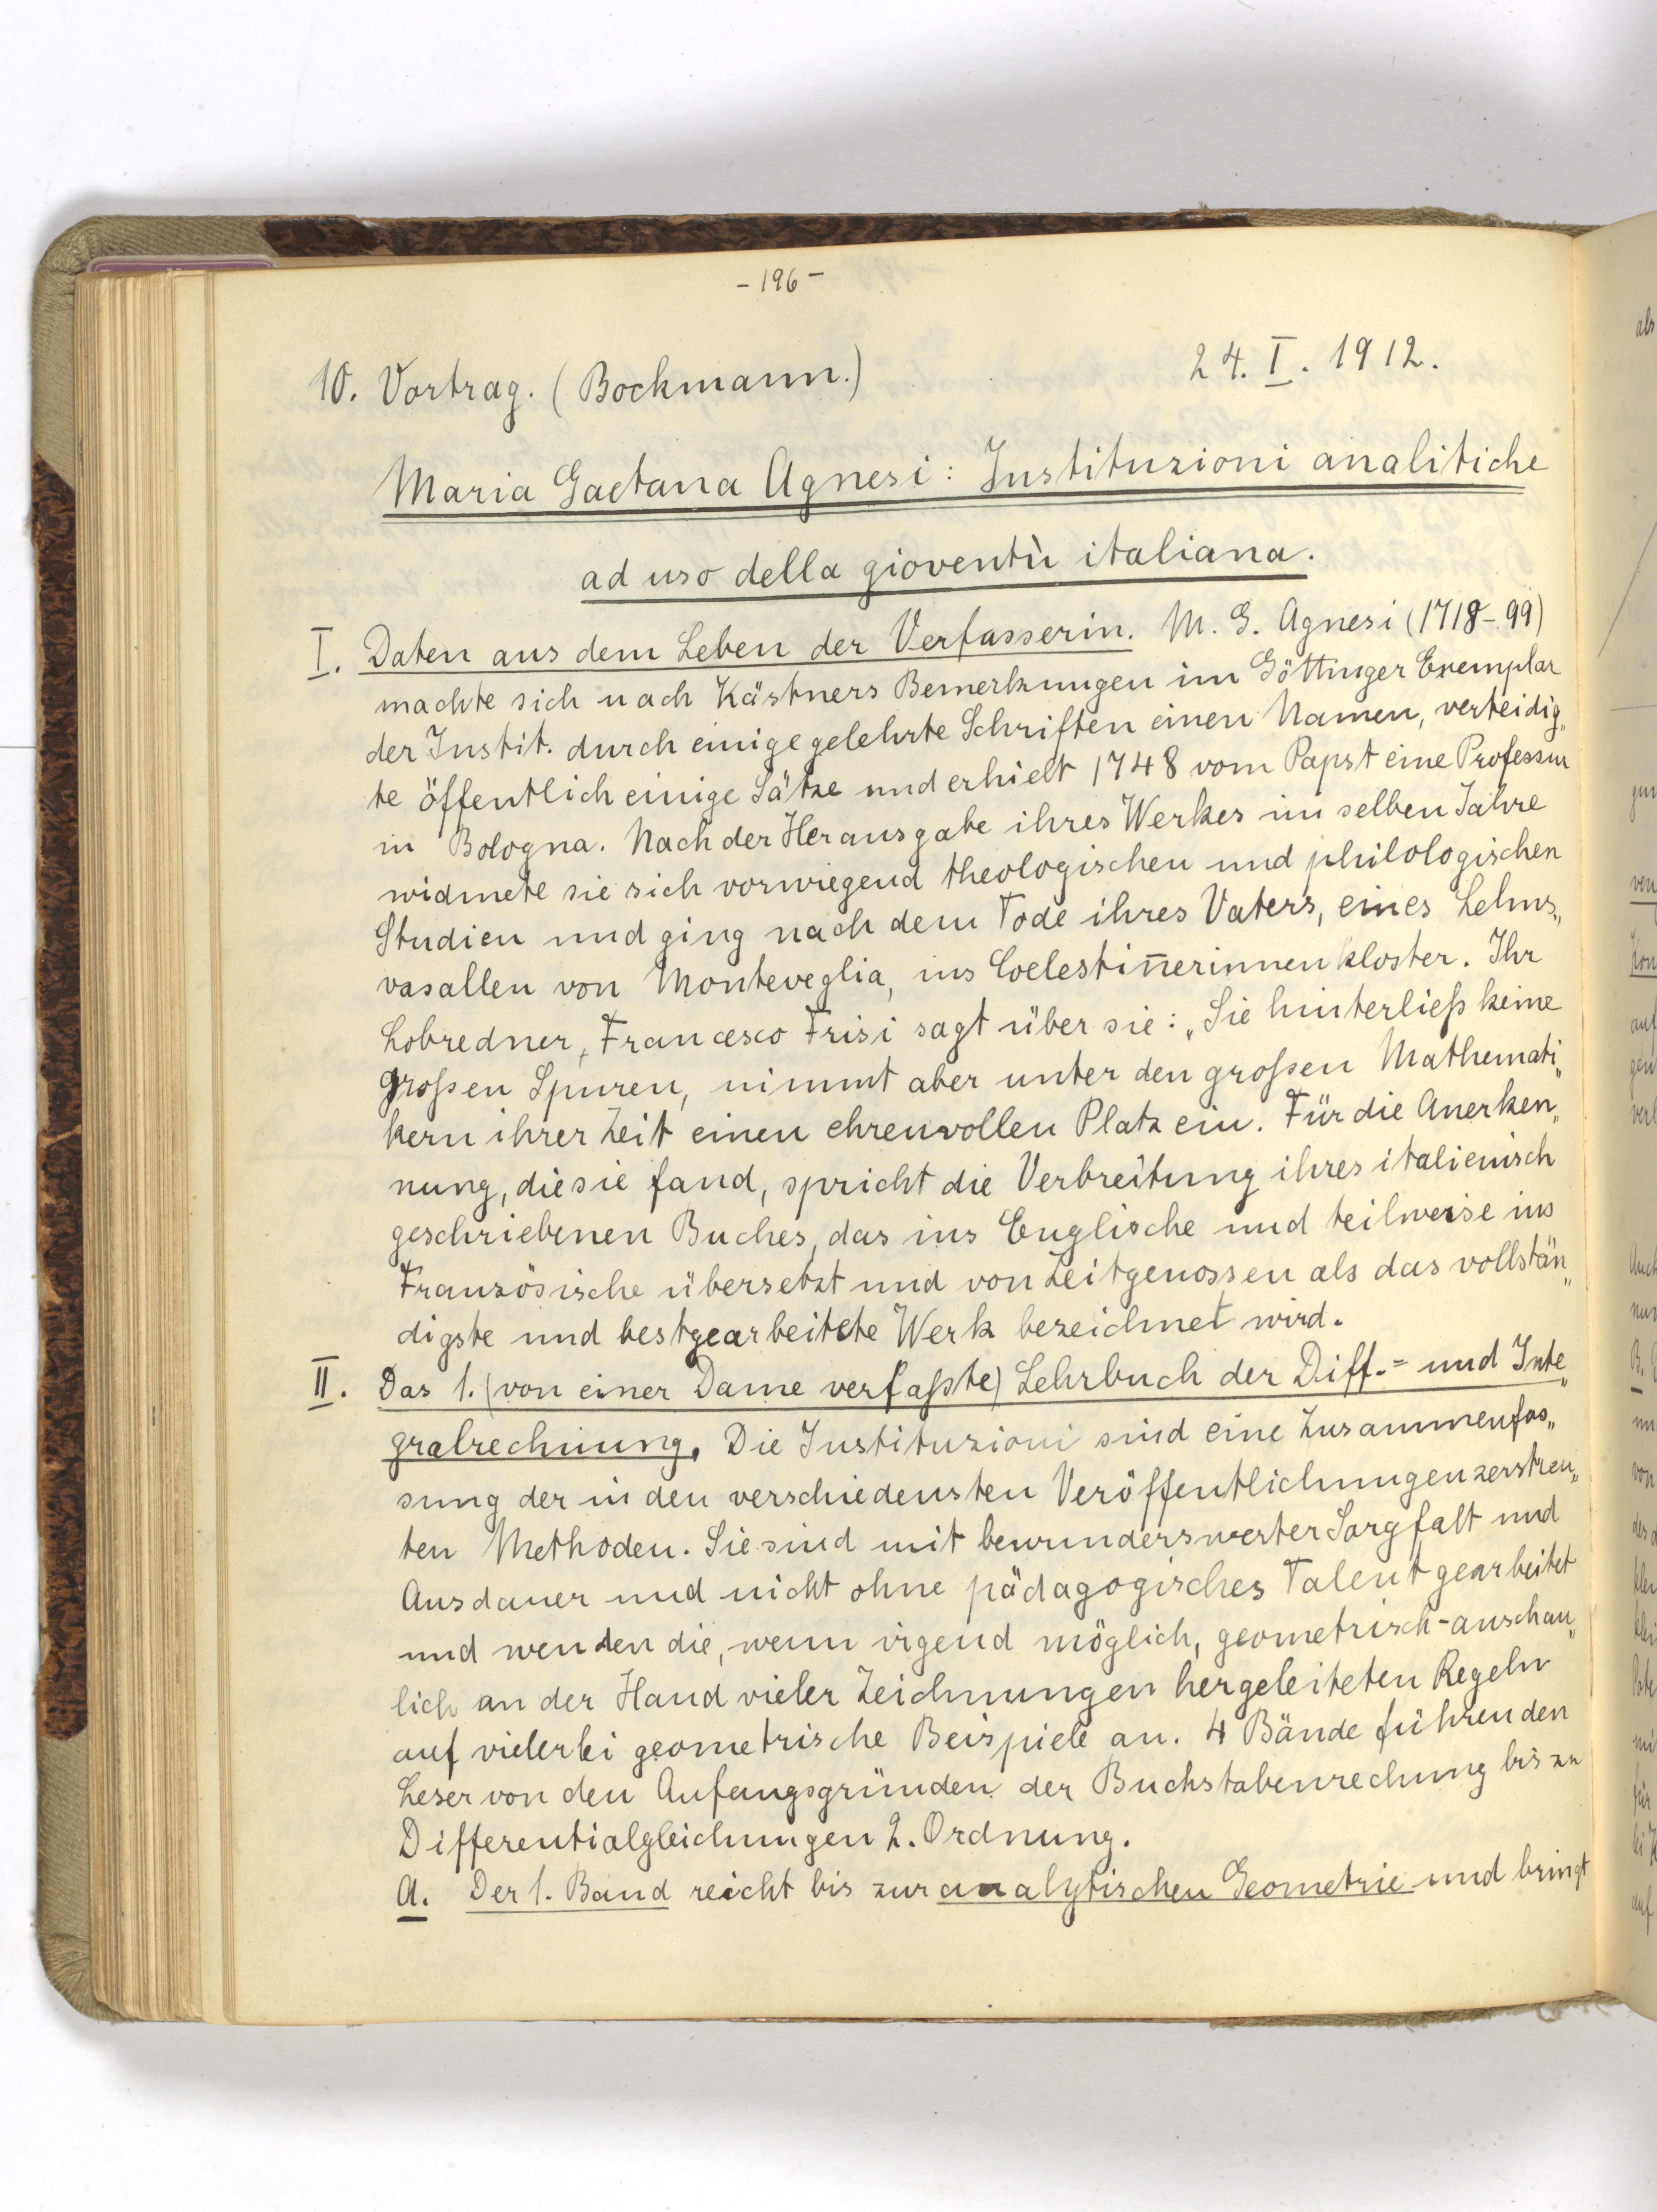 - 196 -
10. Vortrag. (Bockmann.) 24. I. 1912.
Maria Gaetana Agnesi: Instituzioni analitiche
ad uso della gioventù italiana.
I. Daten aus dem Leben der Verfasserin. M. G. Agnesi (1718-99)
machte sich nach Kästners Bemerkungen im Göttinger Exemplar
der Instit. durch einige gelehrte Schriften einen Namen, verteidig„
te öffentlich einige Sätze und erhielt 1748 vom Papst eine Professur
in Bologna. Nach der Herausgabe ihres Werkes im selben Jahre
widmete sie sich vorwiegend theologischen und philologischen
Studien und ging nach dem Tode ihres Vaters, eines Lehns„
vasallen von Monteveglia, ins Coelestinerinnenkloster. Ihr
Lobredner, Francesco Frisi sagt über sie: „Sie hinterließ keine
großen Spuren, nimmt aber unter den großen Mathemati„
kern ihrer Zeit einen ehrenvollen Platz ein. Für die Anerken„
nung, die sie fand, spricht die Verbreitung ihres italienisch
geschriebenen Buches, das ins Englische und teilweise ins
Französische übersetzt und von Zeitgenossen als das vollstän„
digste und bestgearbeitete Werk bezeichnet wird.
II. Das 1. (von einer Dame verfaßte) Lehrbuch der Diff.= und Inte„
gralrechnung. Die Instituzioni sind eine Zusammenfas„
sung der in den verschiedensten Veröffentlichungen zerstreu„
ten Methoden. Sie sind mit bewunderswerter Sorgfalt und
Ausdauer und nicht ohne pädagogisches Talent gearbeitet
und wenden die, wenn irgend möglich, geometrisch-anschau„
lich an der Hand vieler Zeichnungen hergeleiteten Regeln
auf vielerlei geometrische Beispiele an. 4 Bände führen den
Leser von den Anfangsgründen der Buchstabenrechnung bis zu
Differentialgleichungen 2. Ordnung.
A. Der 1. Band reicht bis zur analytischen Geometrie und bringt